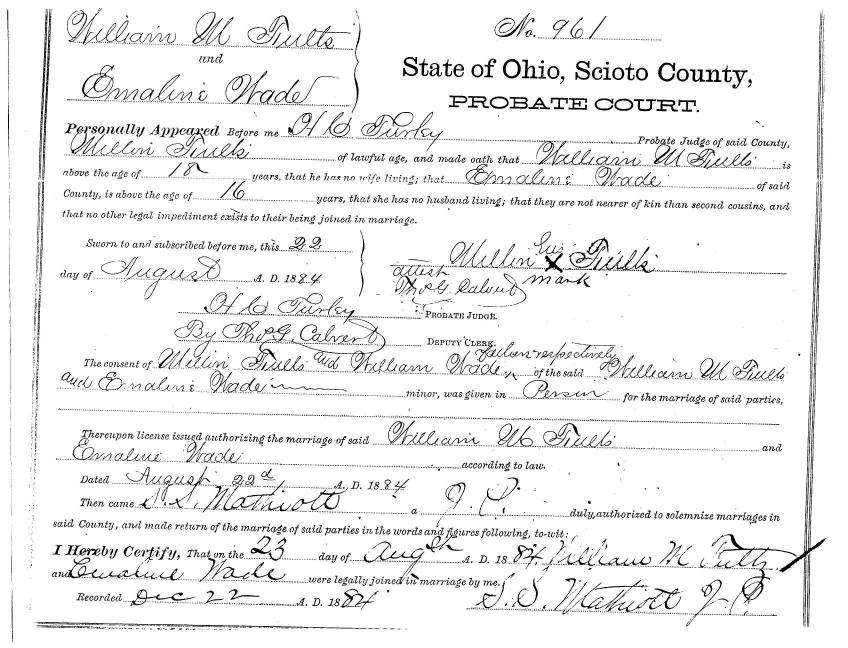 William M Fiults
and
Emaline Wade
No. 961
State of Ohio, Scioto County,
PROBATE COURT.
Personally Appeared Before me H C Turley Probate Judge of said County,
Millin Fiults of lawful age, and made oath that William M Fiults is
above the age of 18 years, that he has no wife living; that Emaline Wade of said
County, is above the age of 16 years, that she has no husband living; that they are not nearer of kin than second cousins, and
that no other legal impediment exists to their being joined in marriage.
Sworn to and subscribed before me, this 22
day of August A. D. 1884
Millin his X Fiults
mark
attest
Thos G. Calvert
H C Turley PROBATE JUDGE.
By Thos G. Calvert DEPUTY CLERK.
The consent of Millin Fiults and William Wade, fathers respectively of the said William M Fiults
and Emaline Wade minor, was given in Person for the marriage of said parties,
Thereupon license issued authorizing the marriage of said William M Fiults and
Emaline Wade according to law.
Dated August 22d A. D. 1884
Then came S. S. Mathiott a J. P. duly authorized to solemnize marriages in
said County, and made return of the marriage of said parties in the words and figures following, to-wit:
I Hereby Certify, That on the 23 day of Augst A. D. 1884 William M Fultz
and Emaline Wade were legally joined in marriage by me.
Recorded Dec 22 A. D. 1884
S. S. Mathiott J. P.